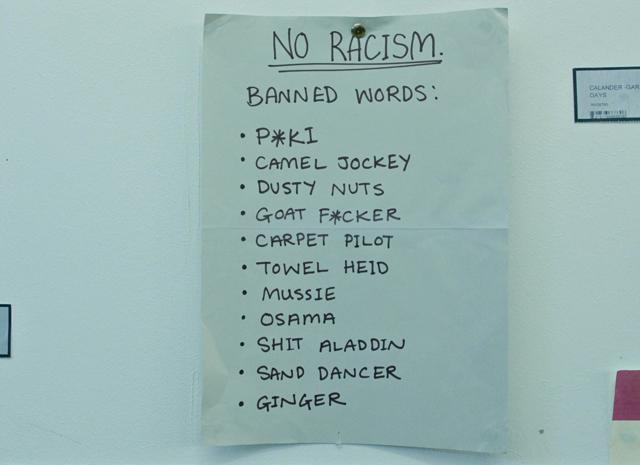 NO RACISM.
BANNED WORDS:
• P*KI
• CAMEL JOCKEY
• DUSTY NUTS
• GOAT F*CKER
• CARPET PILOT
• TOWEL HEID
• MUSSIE
• OSAMA
• SHIT ALADDIN
• SAND DANCER
• GINGER
CALANDER -GAR
DAYS